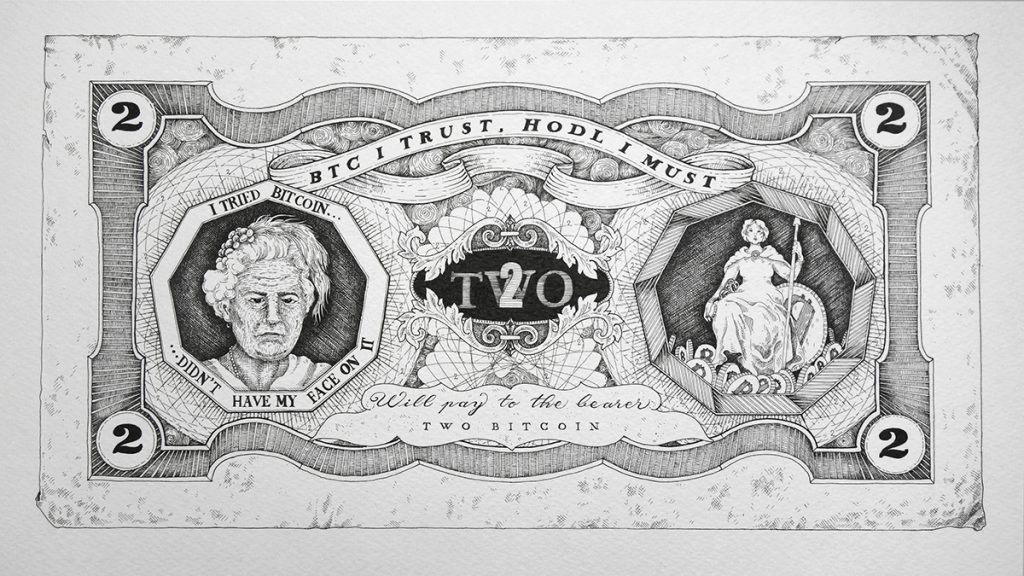 2
2
BTC I TRUST, HODL I MUST
I TRIED BITCOIN...
...DIDN'T HAVE MY FACE ON IT
TWO
2
Will pay to the bearer
TWO BITCOIN
2
2